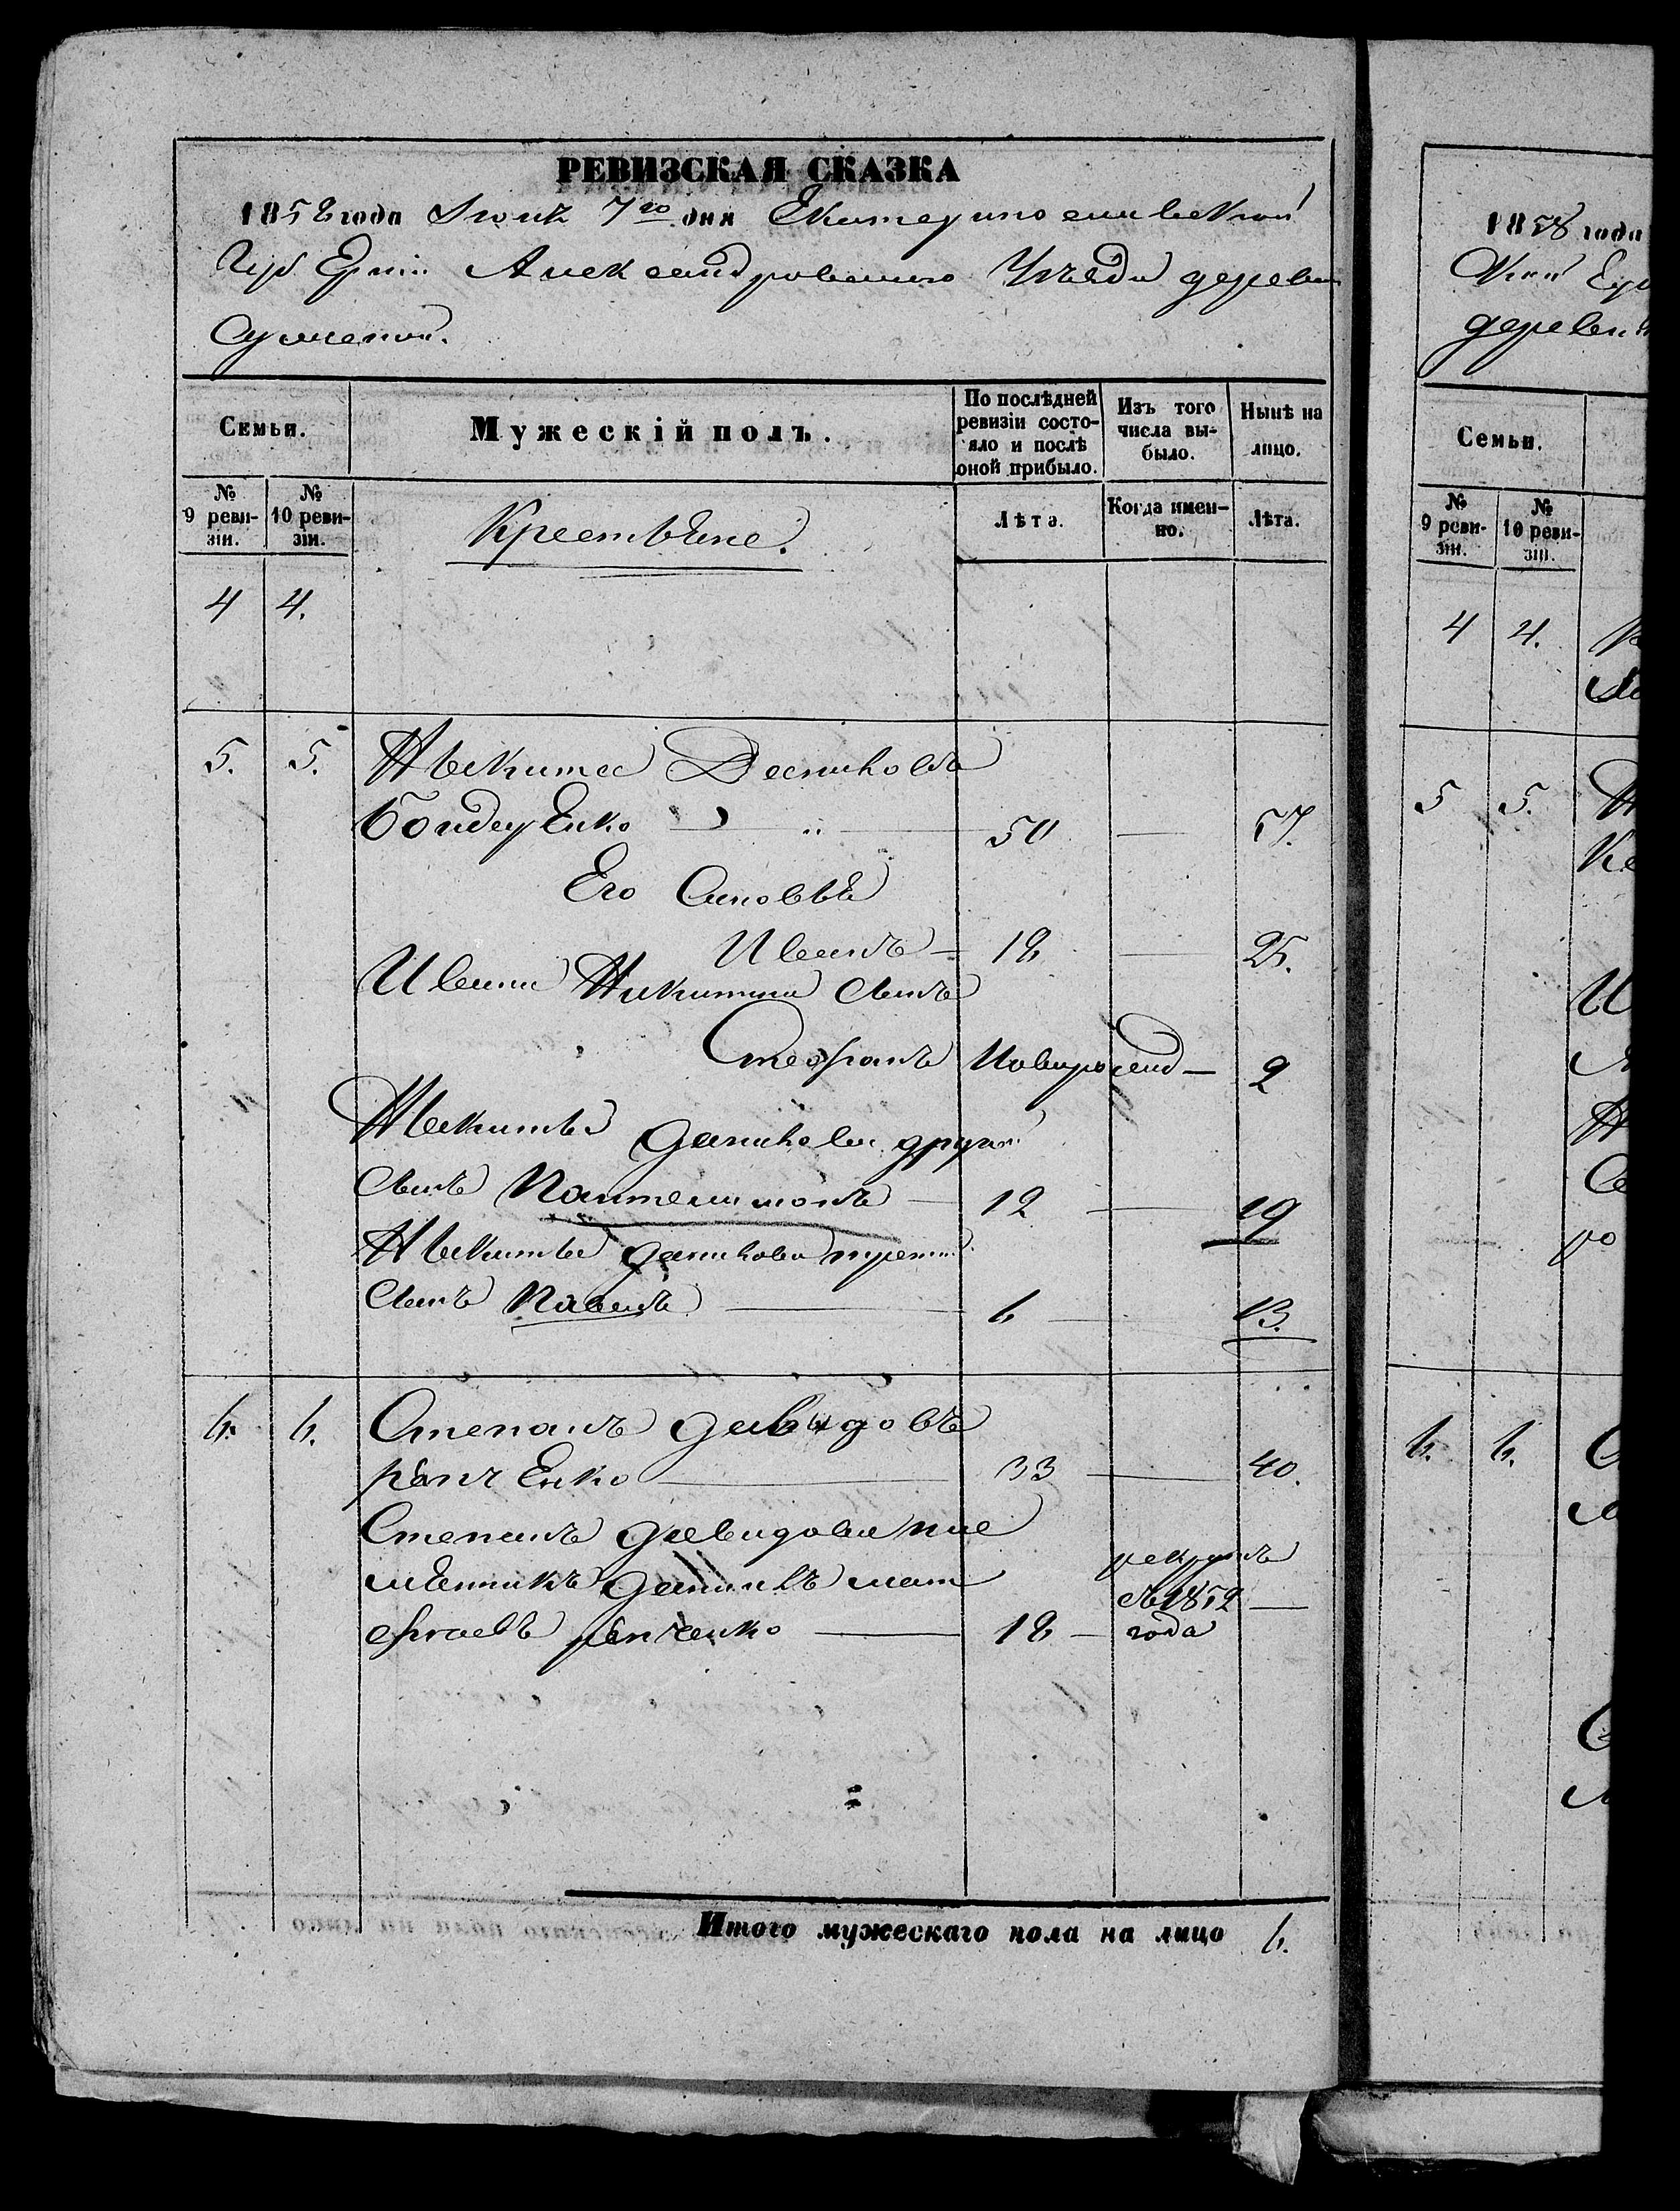 РЕВИЗСКАЯ СКАЗКА
1858 года Іюня 7го дня Екатеринославской
Губерніи Александровского Уезда деревни
Семьи.
Мужескій полъ.
По послѣдней ревизіи состояло и послѣ оной прибыло.
Изъ того числа выбыло.
Нынѣ на лицо.
№ 9 ревизіи.
№ 10 ревизіи.
Крестьяне.
Лѣта.
Когда именно.
Лѣта.
4 4.
5. 5. Никита Даниловъ
Бондаренко " 50 57.
Его Сыновья
Иванъ 18 25.
Ивана Никитина сынъ
Стефанъ Новорожд 2
Никиты Данилова другой
сынъ Пантелимонъ 12 19
Никиты Данилова третий
сынъ Павелъ 6 13.
6. 6. Степанъ Давыдовъ
33 40.
Степана Давидова пле
мянникъ Данилъ мат
феевъ 18 рекрутъ съ 1852 года
Итого мужескаго пола на лицо 6.
1858 года
деревни
Семьи.
№ 9 ревизіи.
№ 10 ревизіи.
4 4.
5 5.
6. 6.